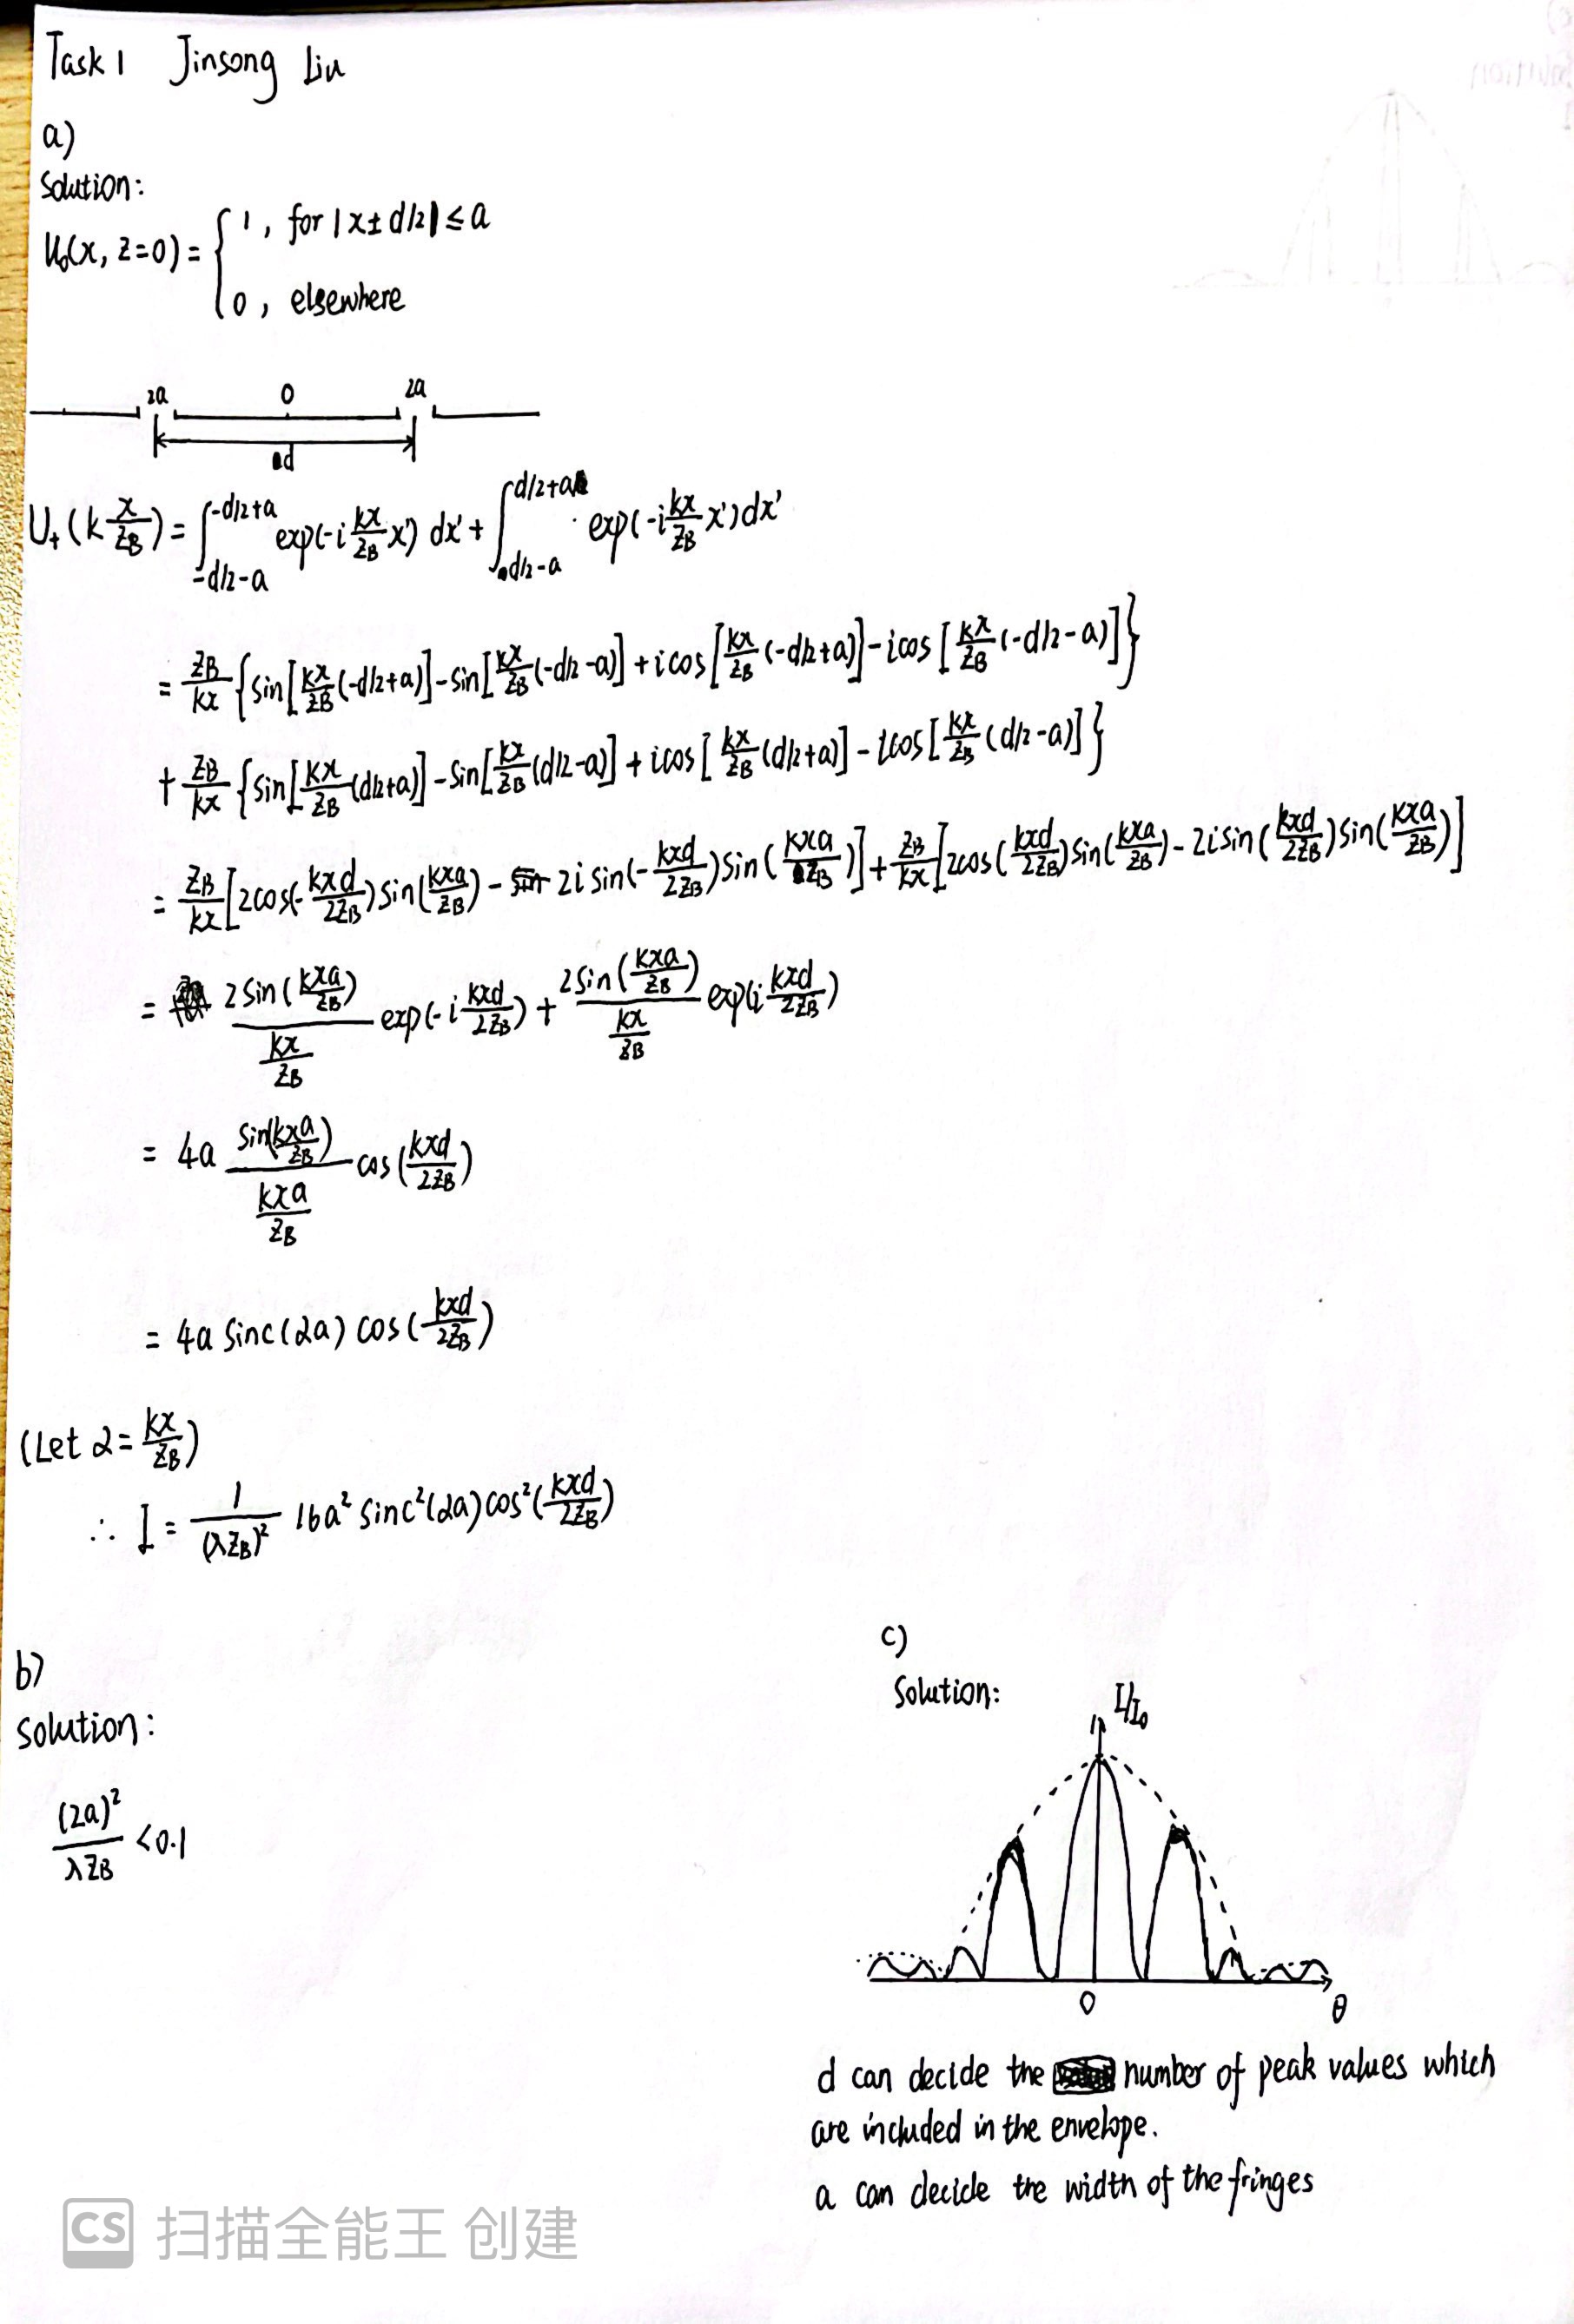 Task 1 Jinsong Liu
a)
Solution:
U₀(x, z=0) = { 1, for |x ± d/2| ≤ a
0, elsewhere
2a 0 2a
d
U₊(k x/z_B) = ∫_{-d/2-a}^{-d/2+a} exp(-i kx/z_B x') dx' + ∫_{d/2-a}^{d/2+a} exp(-i kx/z_B x') dx'
= z_B/kx {sin[kx/z_B (-d/2+a)] - sin[kx/z_B (-d/2-a)] + i cos[kx/z_B (-d/2+a)] - i cos[kx/z_B (-d/2-a)]}
+ z_B/kx {sin[kx/z_B (d/2+a)] - sin[kx/z_B (d/2-a)] + i cos[kx/z_B (d/2+a)] - i cos[kx/z_B (d/2-a)]}
= z_B/kx [2cos(-kxd/2z_B) sin(kxa/z_B) - 2i sin(-kxd/2z_B) sin(kxa/z_B)] + z_B/kx [2cos(kxd/2z_B) sin(kxa/z_B) - 2i sin(kxd/2z_B) sin(kxa/z_B)]
= 2 sin(kxa/z_B)/(kx/z_B) exp(-i kxd/2z_B) + 2 sin(kxa/z_B)/(kx/z_B) exp(i kxd/2z_B)
= 4a sin(kxa/z_B)/(kxa/z_B) cos(kxd/2z_B)
= 4a sinc(αa) cos(kxd/2z_B)
(Let α = kx/z_B)
∴ I = 1/(λz_B)² 16a² sinc²(αa) cos²(kxd/2z_B)
b)
solution:
(2a)²/λz_B < 0.1
c)
Solution:
I/I₀
0
θ
d can decide the number of peak values which
are included in the envelope.
a can decide the width of the fringes
CS 扫描全能王 创建